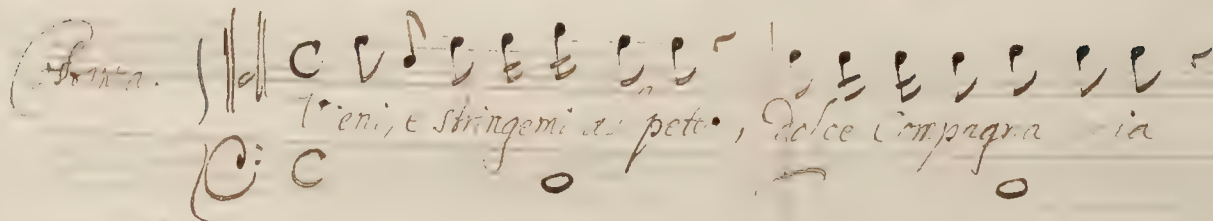 Vieni, e stringemi al petto, Dolce Compagna ia